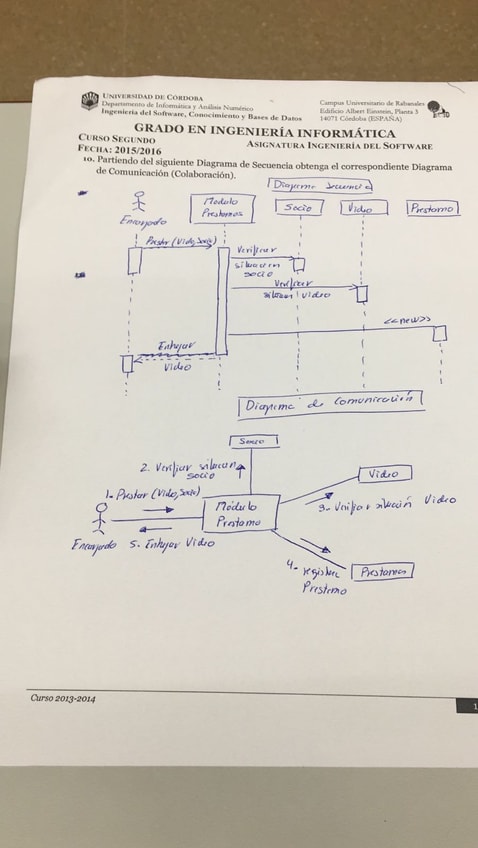 UNIVERSIDAD DE CÓRDOBA
Departamento de Informática y Análisis Numérico
Ingeniería del Software, Conocimiento y Bases de Datos
Campus Universitario de Rabanales
Edificio Albert Einstein, Planta 3
14071 Córdoba (ESPAÑA)
GRADO EN INGENIERÍA INFORMÁTICA
CURSO SEGUNDO
ASIGNATURA INGENIERÍA DEL SOFTWARE
FECHA: 2015/2016
10. Partiendo del siguiente Diagrama de Secuencia obtenga el correspondiente Diagrama
de Comunicación (Colaboración).
Diagrama Secuencia
Encargado
Modulo
Prestamos
Socio
Video
Prestamo
Prestar (Video, Socio)
Verificar
situacion
socio
Verificar
situacion Video
<<new>>
Entregar
Video
Diagrama de Comunicación
Socio
2. Verificar situacion
socio
Video
1- Prestar (Video, Socio)
Módulo
Prestamo
3- Verificar situación Video
Encargado
5. Entregar Video
4- registrar
Prestamo
Prestamos
Curso 2013-2014
1